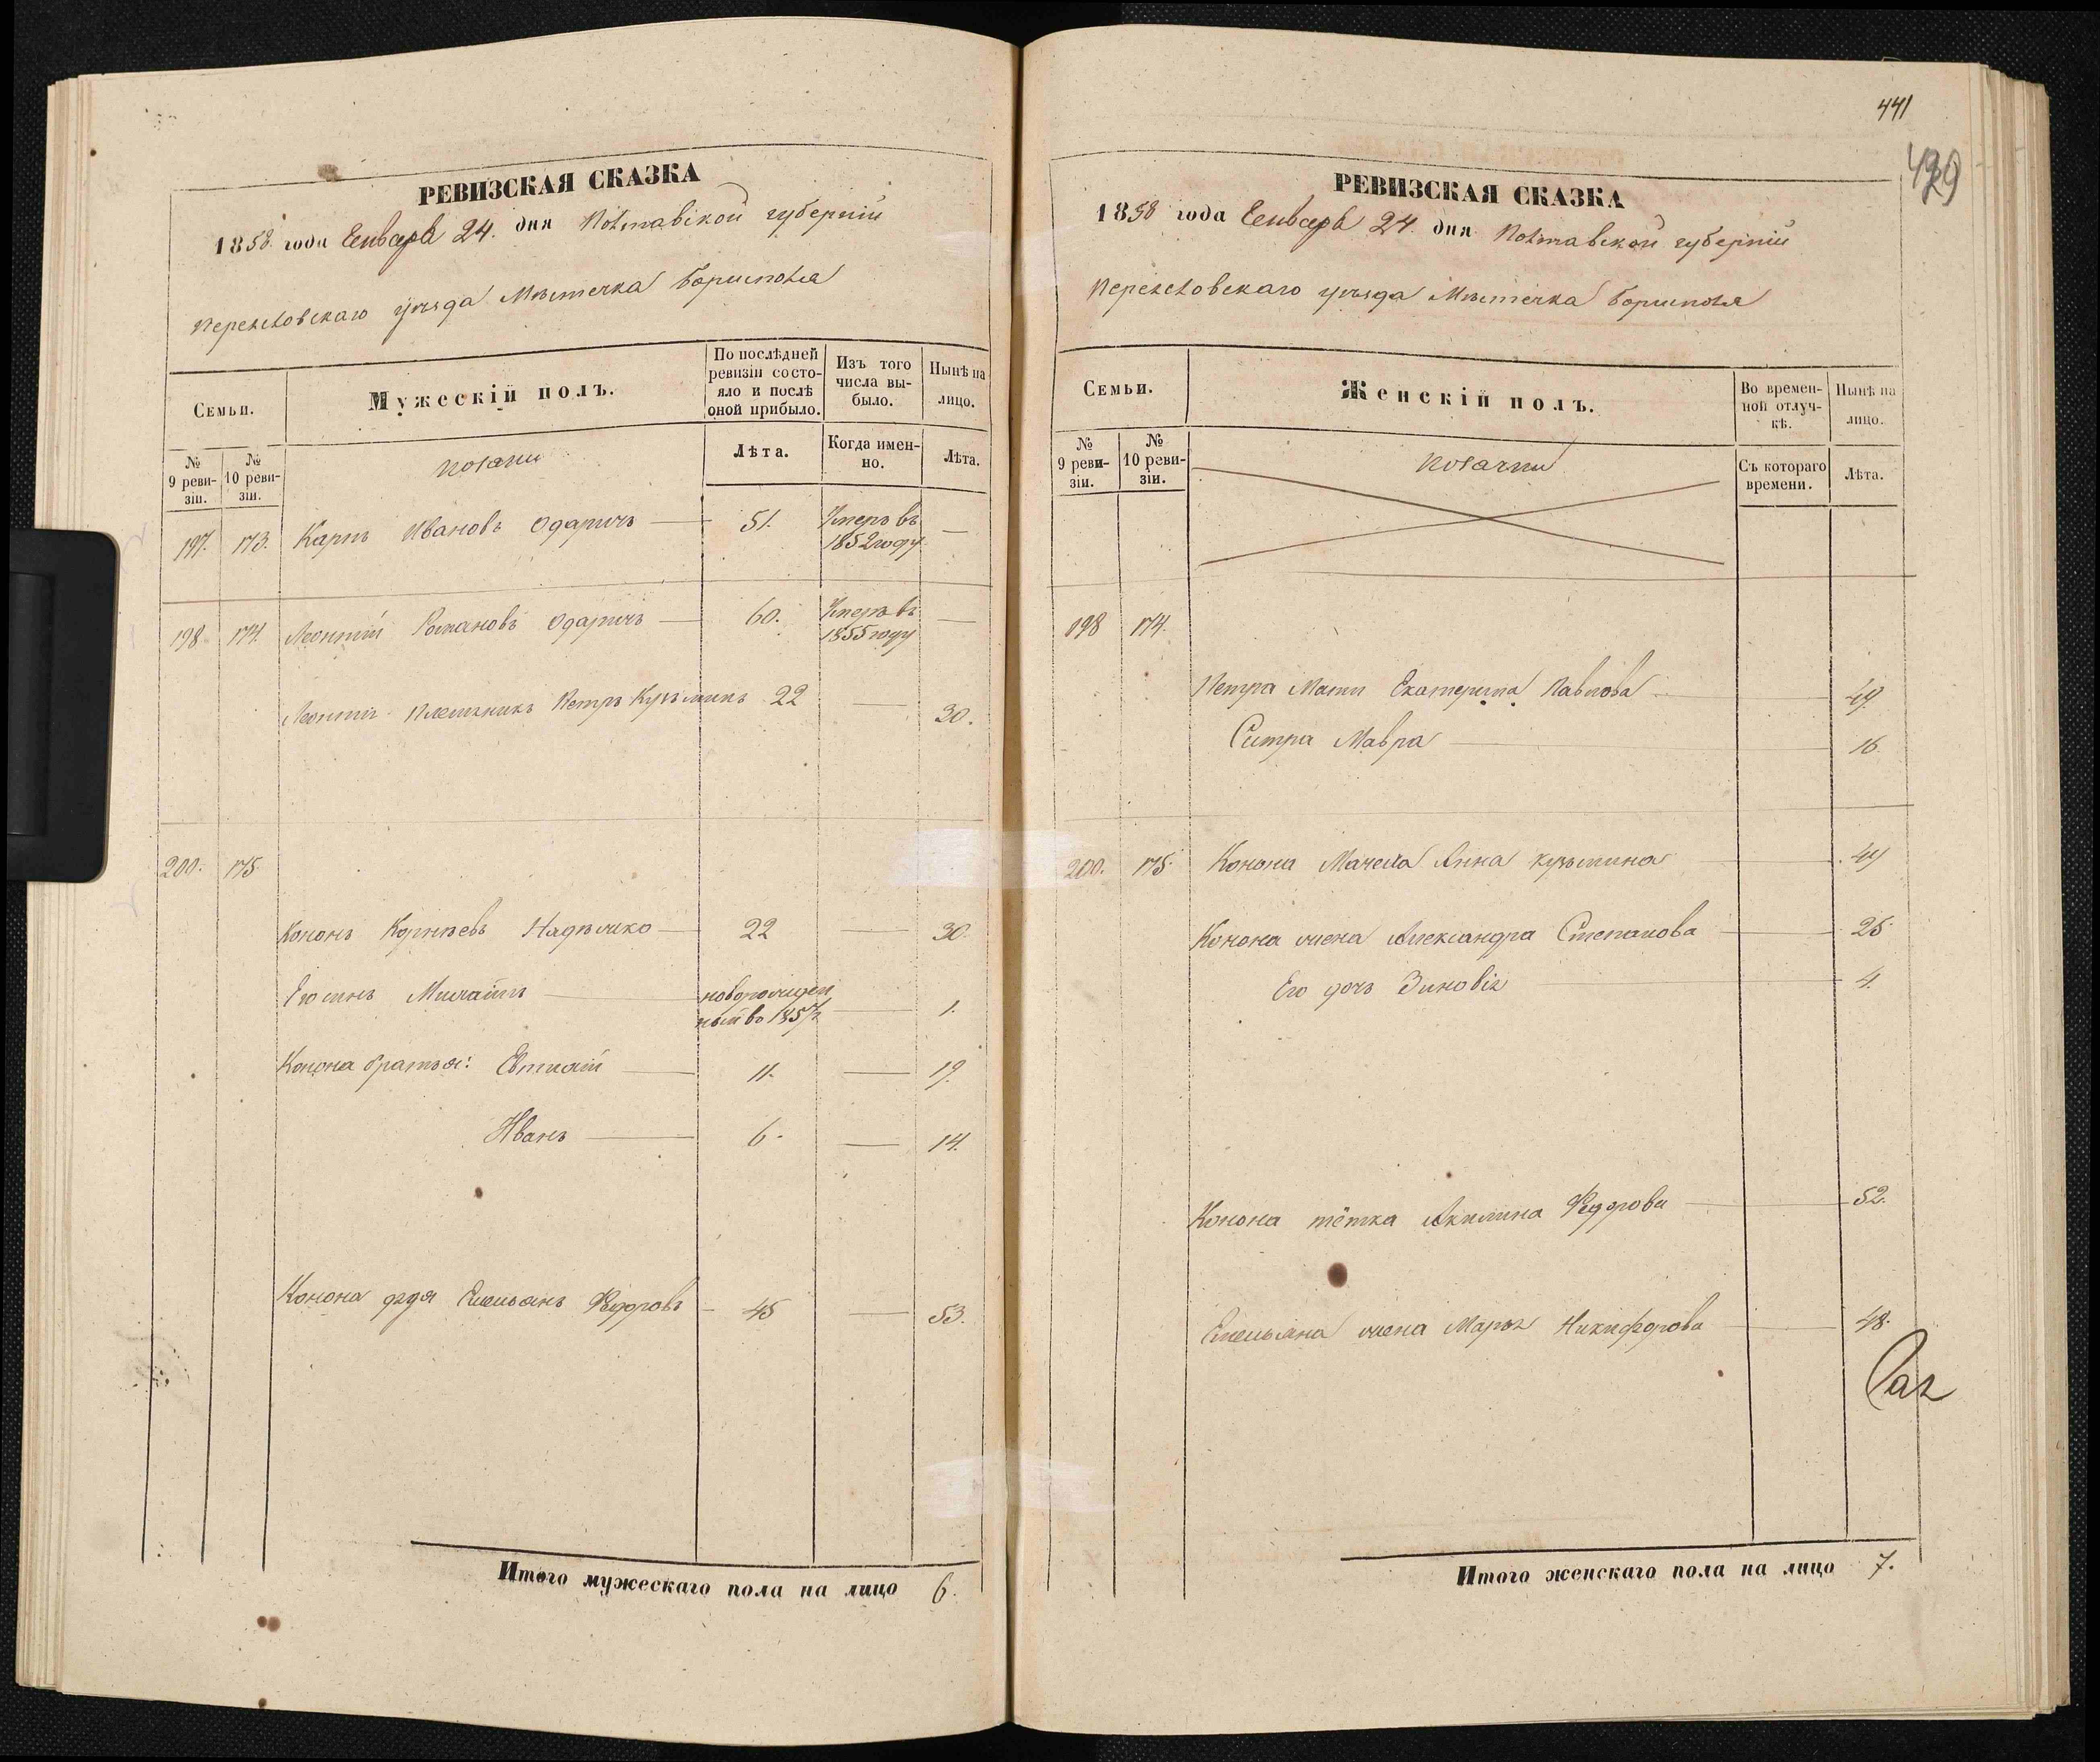 441
429
РЕВИЗСКАЯ СКАЗКА
1858 года Генваря 24. дня Полтавской губерніи
Переяславскаго уѣзда Мѣстечка Борисполя
Семьи.
Мужескій полъ.
По послѣдней ревизіи состояло и послѣ оной прибыло.
Изъ того числа выбыло.
Нынѣ на лицо.
№ 9 ревизіи.
№ 10 ревизіи.
Козаки
Лѣта.
Когда именно.
Лѣта.
197. 173. Карпъ Ивановъ Одаричъ — 51. Умеръ въ 1852 году —
198. 174. Леонтій Романовъ Одаричъ — 60. Умеръ въ 1855 году —
Леонтія племянникъ Петръ Кузьминъ 22 — 30.
200. 175.
Кононъ Корнѣевъ — 22 — 30.
Его сынъ Михаилъ — новорожденный въ 1857 г. — 1.
Конона братья: Евтихій — 11. — 19.
Иванъ — 6. — 14.
Конона дядя Емельянъ Федоровъ — 45 — 53.
Итого мужескаго пола на лицо 6.
РЕВИЗСКАЯ СКАЗКА
1858 года Генваря 24. дня Полтавской губерніи
Переяславскаго уѣзда Мѣстечка Борисполя
Семьи.
Женскій полъ.
Во временной отлучкѣ.
Нынѣ на лицо.
№ 9 ревизіи.
№ 10 ревизіи.
Козачки
Съ котораго времени.
Лѣта.
198 174.
Петра Мати Екатерина Павлова — 49.
Систра Мавра — 16.
200. 175. Конона Мачеха Анна Кузьмина — 49
Конона жена Александра Степанова — 25.
Его дочь Зиновія — 4.
Конона тётка Акилина Федорова — 52.
Емельяна жена Марья Никифорова — 48.
Итого женскаго пола на лицо 7.